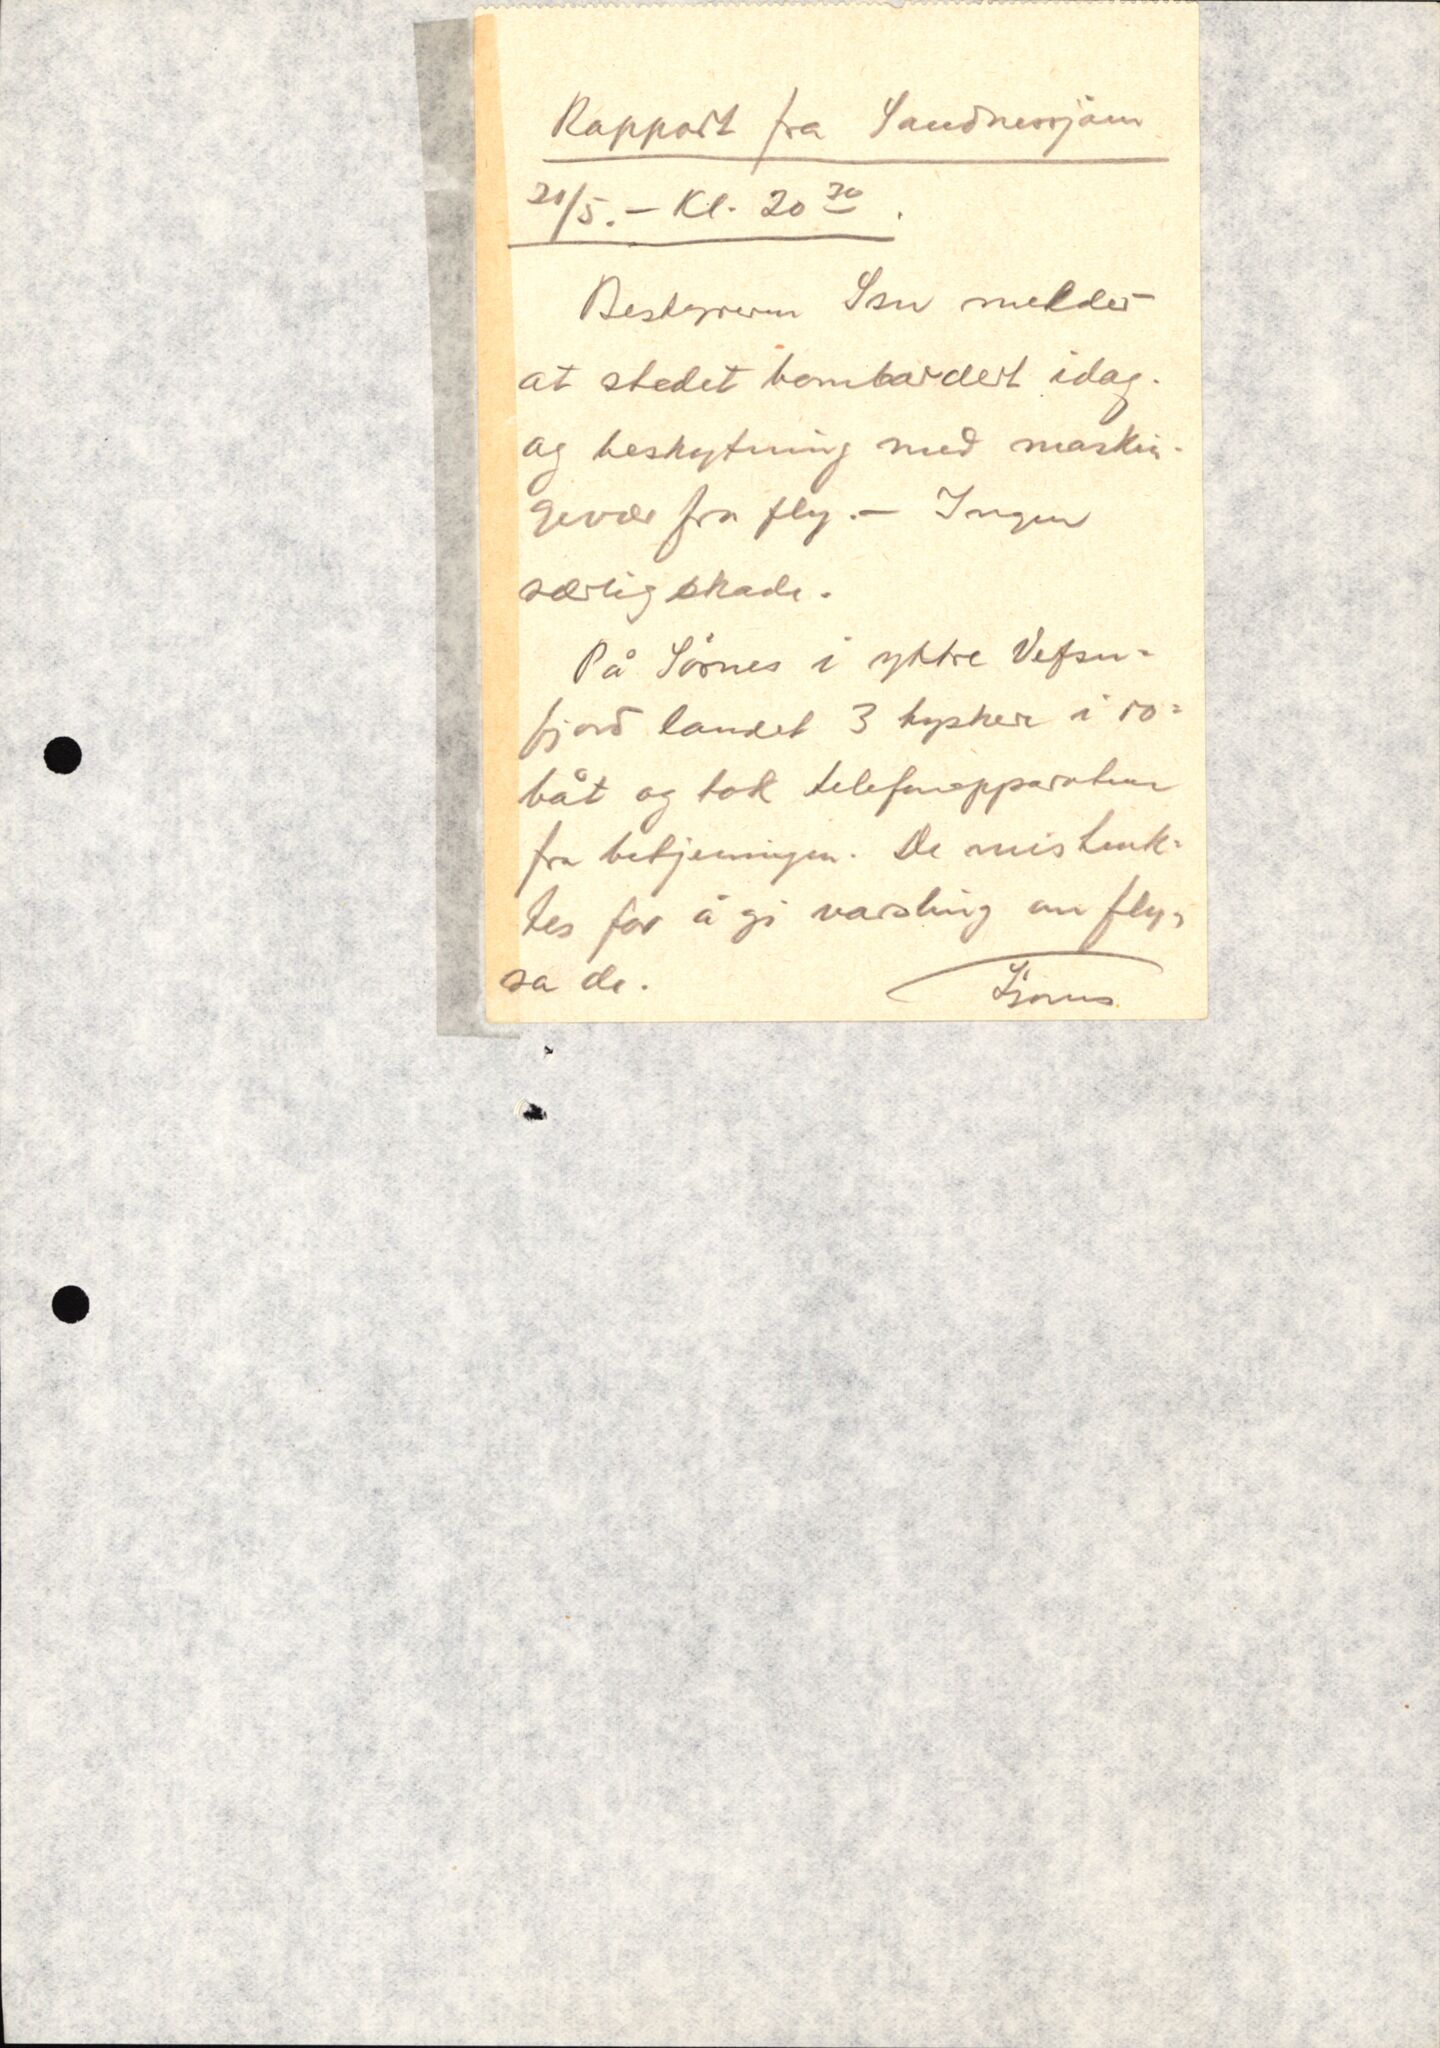 Rapport fra Sandnessjøen
21/5. – Kl. 20 30.
Bestyreren Ssu melder
at stedet bombardert idag.
og beskytning med maskin-
gevær fra fly. – Ingen
særlig skade.
På Sörnes i yttre Vefsn=
fjord landet 3 tyskere i ro=
båt og tok telefonapparatene
fra betjeningen. De mistenk=
tes for å gi varsling om fly,
sa de.